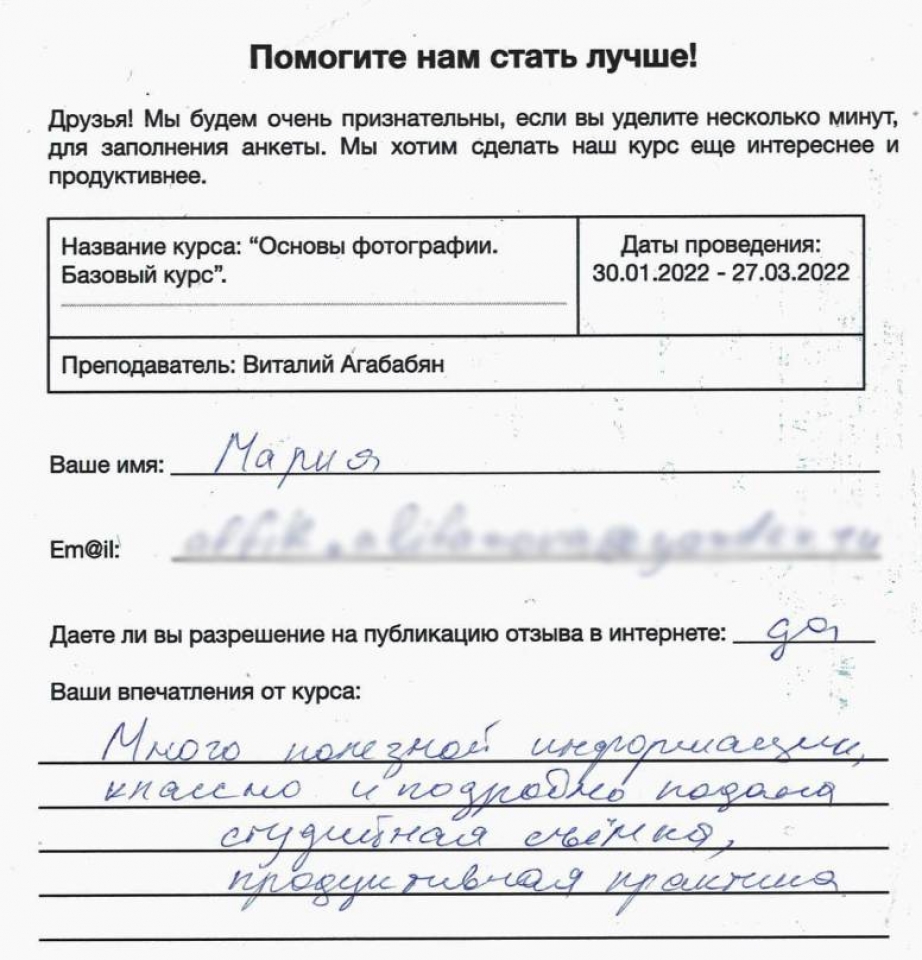 Помогите нам стать лучше!
Друзья! Мы будем очень признательны, если вы уделите несколько минут,
для заполнения анкеты. Мы хотим сделать наш курс еще интереснее и
продуктивнее.
Название курса: “Основы фотографии.
Базовый курс”.
Даты проведения:
30.01.2022 - 27.03.2022
Преподаватель: Виталий Агабабян
Ваше имя: Мария
Em@il:
Даете ли вы разрешение на публикацию отзыва в интернете: да
Ваши впечатления от курса:
Много полезной информации,
классно и подробно подана
студийная съёмка,
продуктивная практика